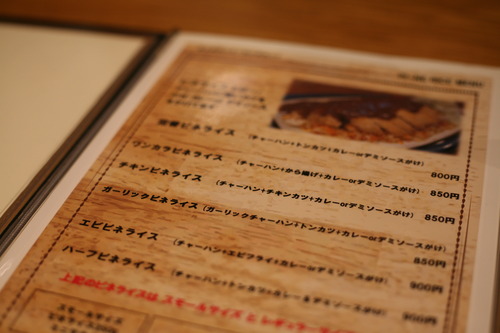 定番ビネライス (チャーハン+トンカツ+カレーorデミソースがけ) 800円
ワンカラビネライス (チャーハン+から揚げ+カレーorデミソースがけ) 850円
チキンビネライス (チャーハン+チキンカツ+カレーorデミソースがけ) 850円
ガーリックビネライス (ガーリックチャーハン+トンカツ+カレーorデミソースがけ) 850円
エビビネライス (チャーハン+エビフライ+カレーorデミソースがけ) 900円
ハーフビネライス (チャーハン+トンカツ+カレー&デミソースがけ) 900円
上記のビネライスは スモールサイズ と レギュラー
スモールサイズ